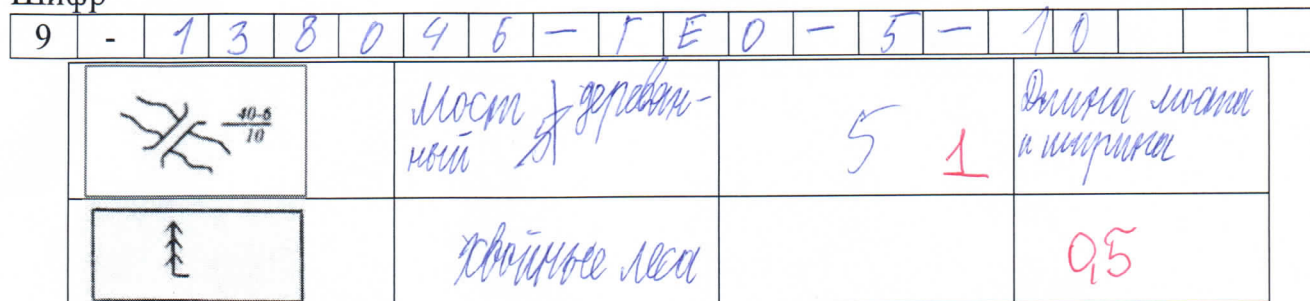 Шифр
9 - 138046-ГЕО-5-10
40-6
10
Мост деревян-
ный
5 1
Длина моста
и ширина
хвойные леса
0,5